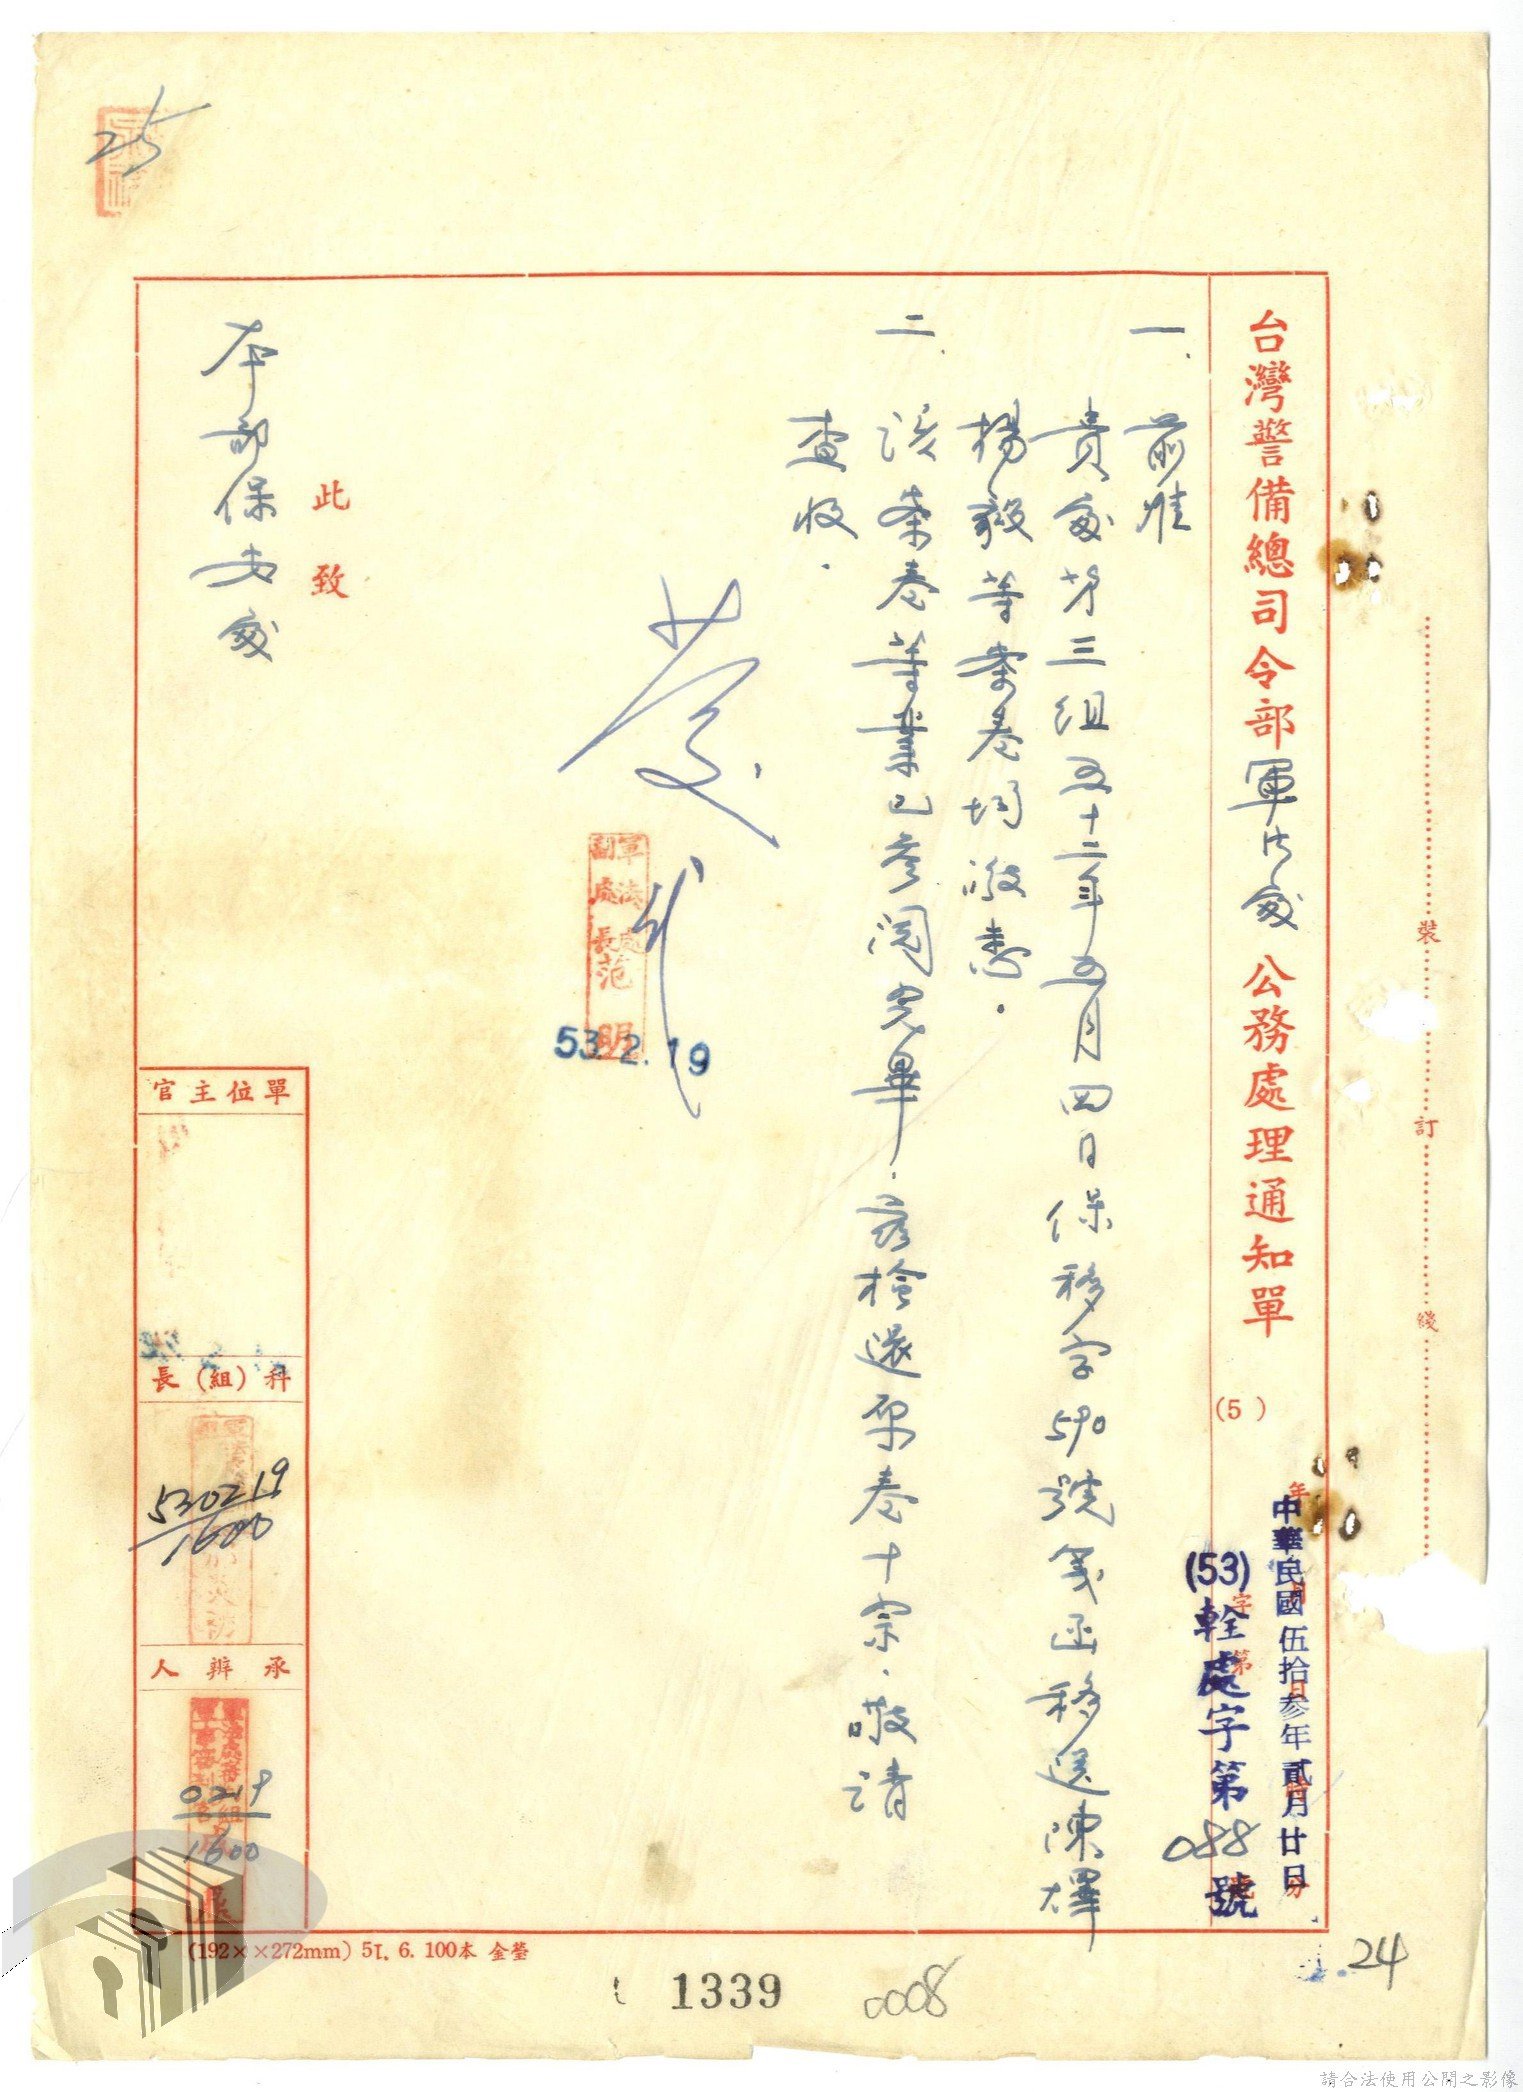 25
台灣警備總司令部軍法處公務處理通知單
(5)
中華民國伍拾叁年貳月廿日
(53)軽處字第088號
一、前准
貴處第三組五十二年五月四日保移字590號箋函移送陳
楊毅等案卷均敬悉。
二、該案卷等業已參閱完畢,茲檢還原卷十宗,敬請
查收。
軍法處
副處長范明
53.2.19
此致
本部保安處
單位主官
科(組)長
530219
1600
承辦人
0219
1600
(192××272mm) 51. 6. 100本 金瑩
1339
0008
24
裝
訂
綫
請合法使用公開之影像